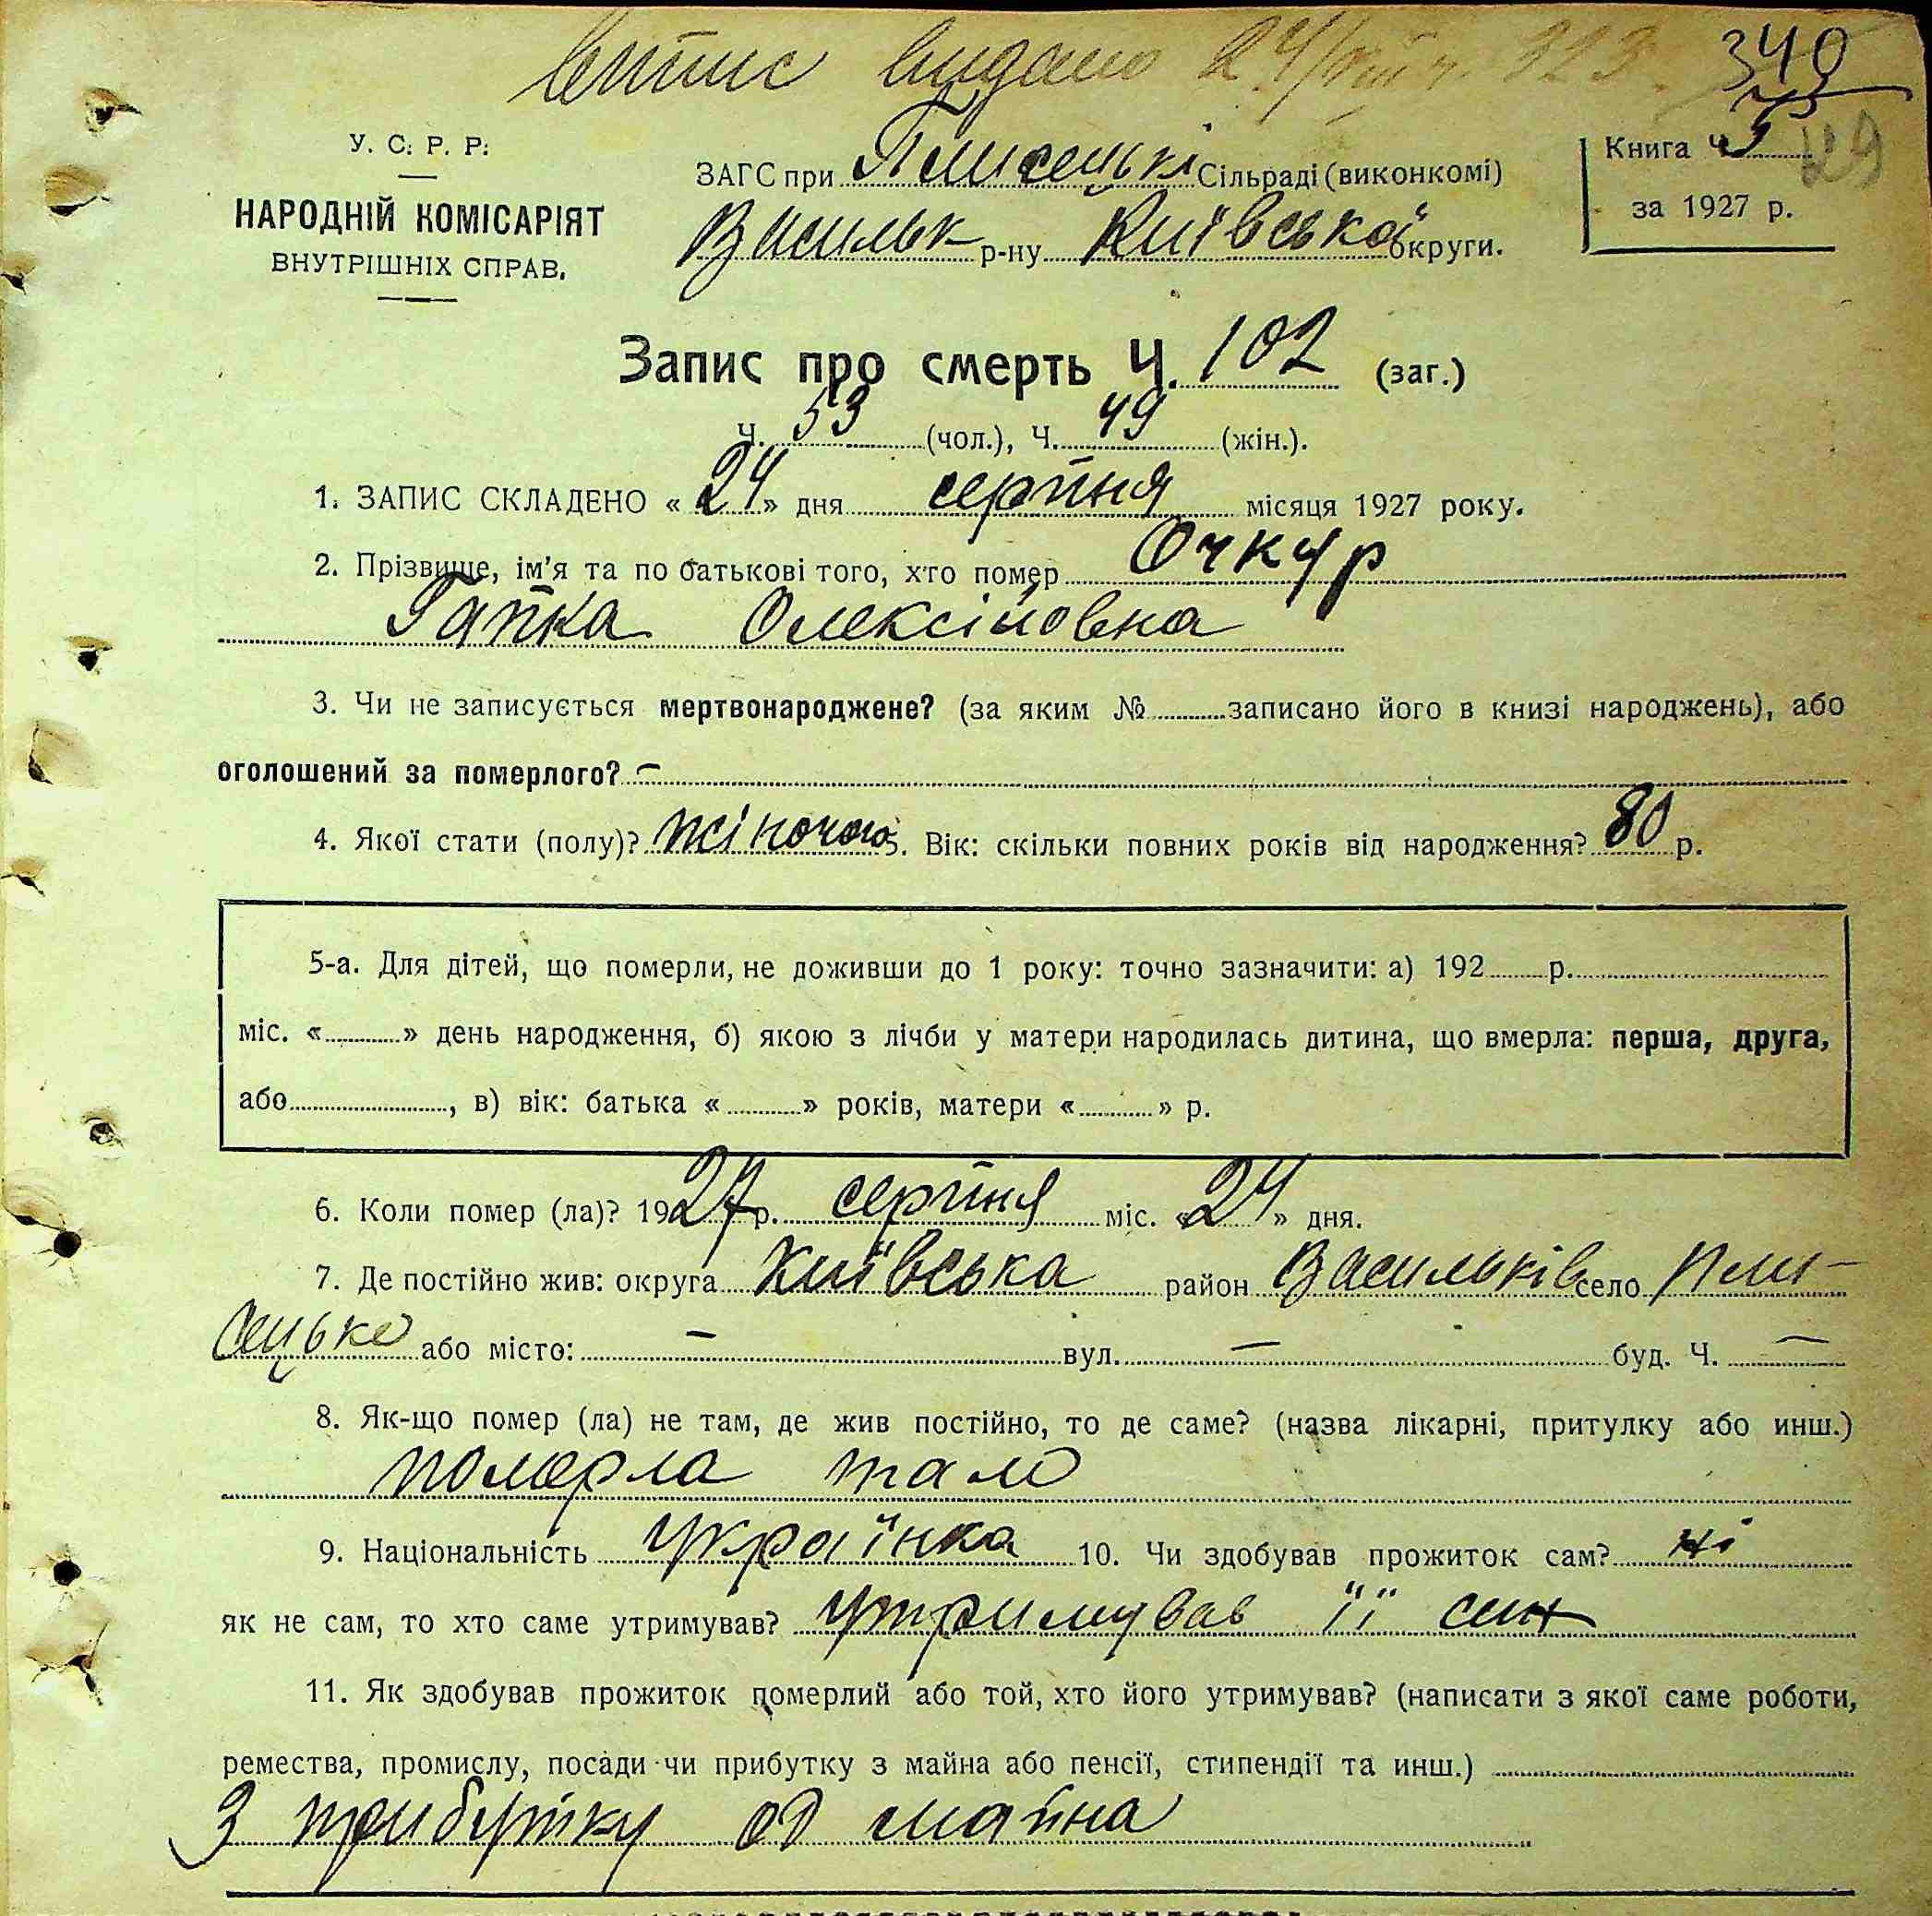 випис видано 24/VIII ч. 323
340
75
29
У. С. Р. Р.
НАРОДНІЙ КОМІСАРІЯТ
ВНУТРІШНІХ СПРАВ.
ЗАГС при Плисецькі Сільраді (виконкомі)
Васильк р-ну Київської округи.
Книга Ч. 5
за 1927 р.
Запис про смерть Ч. 102 (заг.)
Ч. 53 (чол.), Ч. 49 (жін.).
1. ЗАПИС СКЛАДЕНО « 24 » дня серпня місяця 1927 року.
2. Прізвище, ім'я та по батькові того, хто помер Очкур
Гапка Олексійовна
3. Чи не записується мертвонароджене? (за яким № записано його в книзі народжень), або
оголошений за померлого? —
4. Якої стати (полу)? жіночою 5. Вік: скільки повних років від народження? 80 р.
5-а. Для дітей, що померли, не доживши до 1 року: точно зазначити: а) 192 р.
міс. « » день народження, б) якою з лічби у матери народилась дитина, що вмерла: перша, друга,
або , в) вік: батька « » років, матери « » р.
6. Коли помер (ла)? 1927 р. серпня міс. « 24 » дня.
7. Де постійно жив: округа Київська район Васильків село Пли-
сецьке або місто: — вул. — буд. Ч. —
8. Як-що помер (ла) не там, де жив постійно, то де саме? (назва лікарні, притулку або инш.)
померла там
9. Національність українка 10. Чи здобував прожиток сам? ні
як не сам, то хто саме утримував? утримував її син
11. Як здобував прожиток померлий або той, хто його утримував? (написати з якої саме роботи,
ремества, промислу, посади чи прибутку з майна або пенсії, стипендії та инш.)
З прибутку од майна